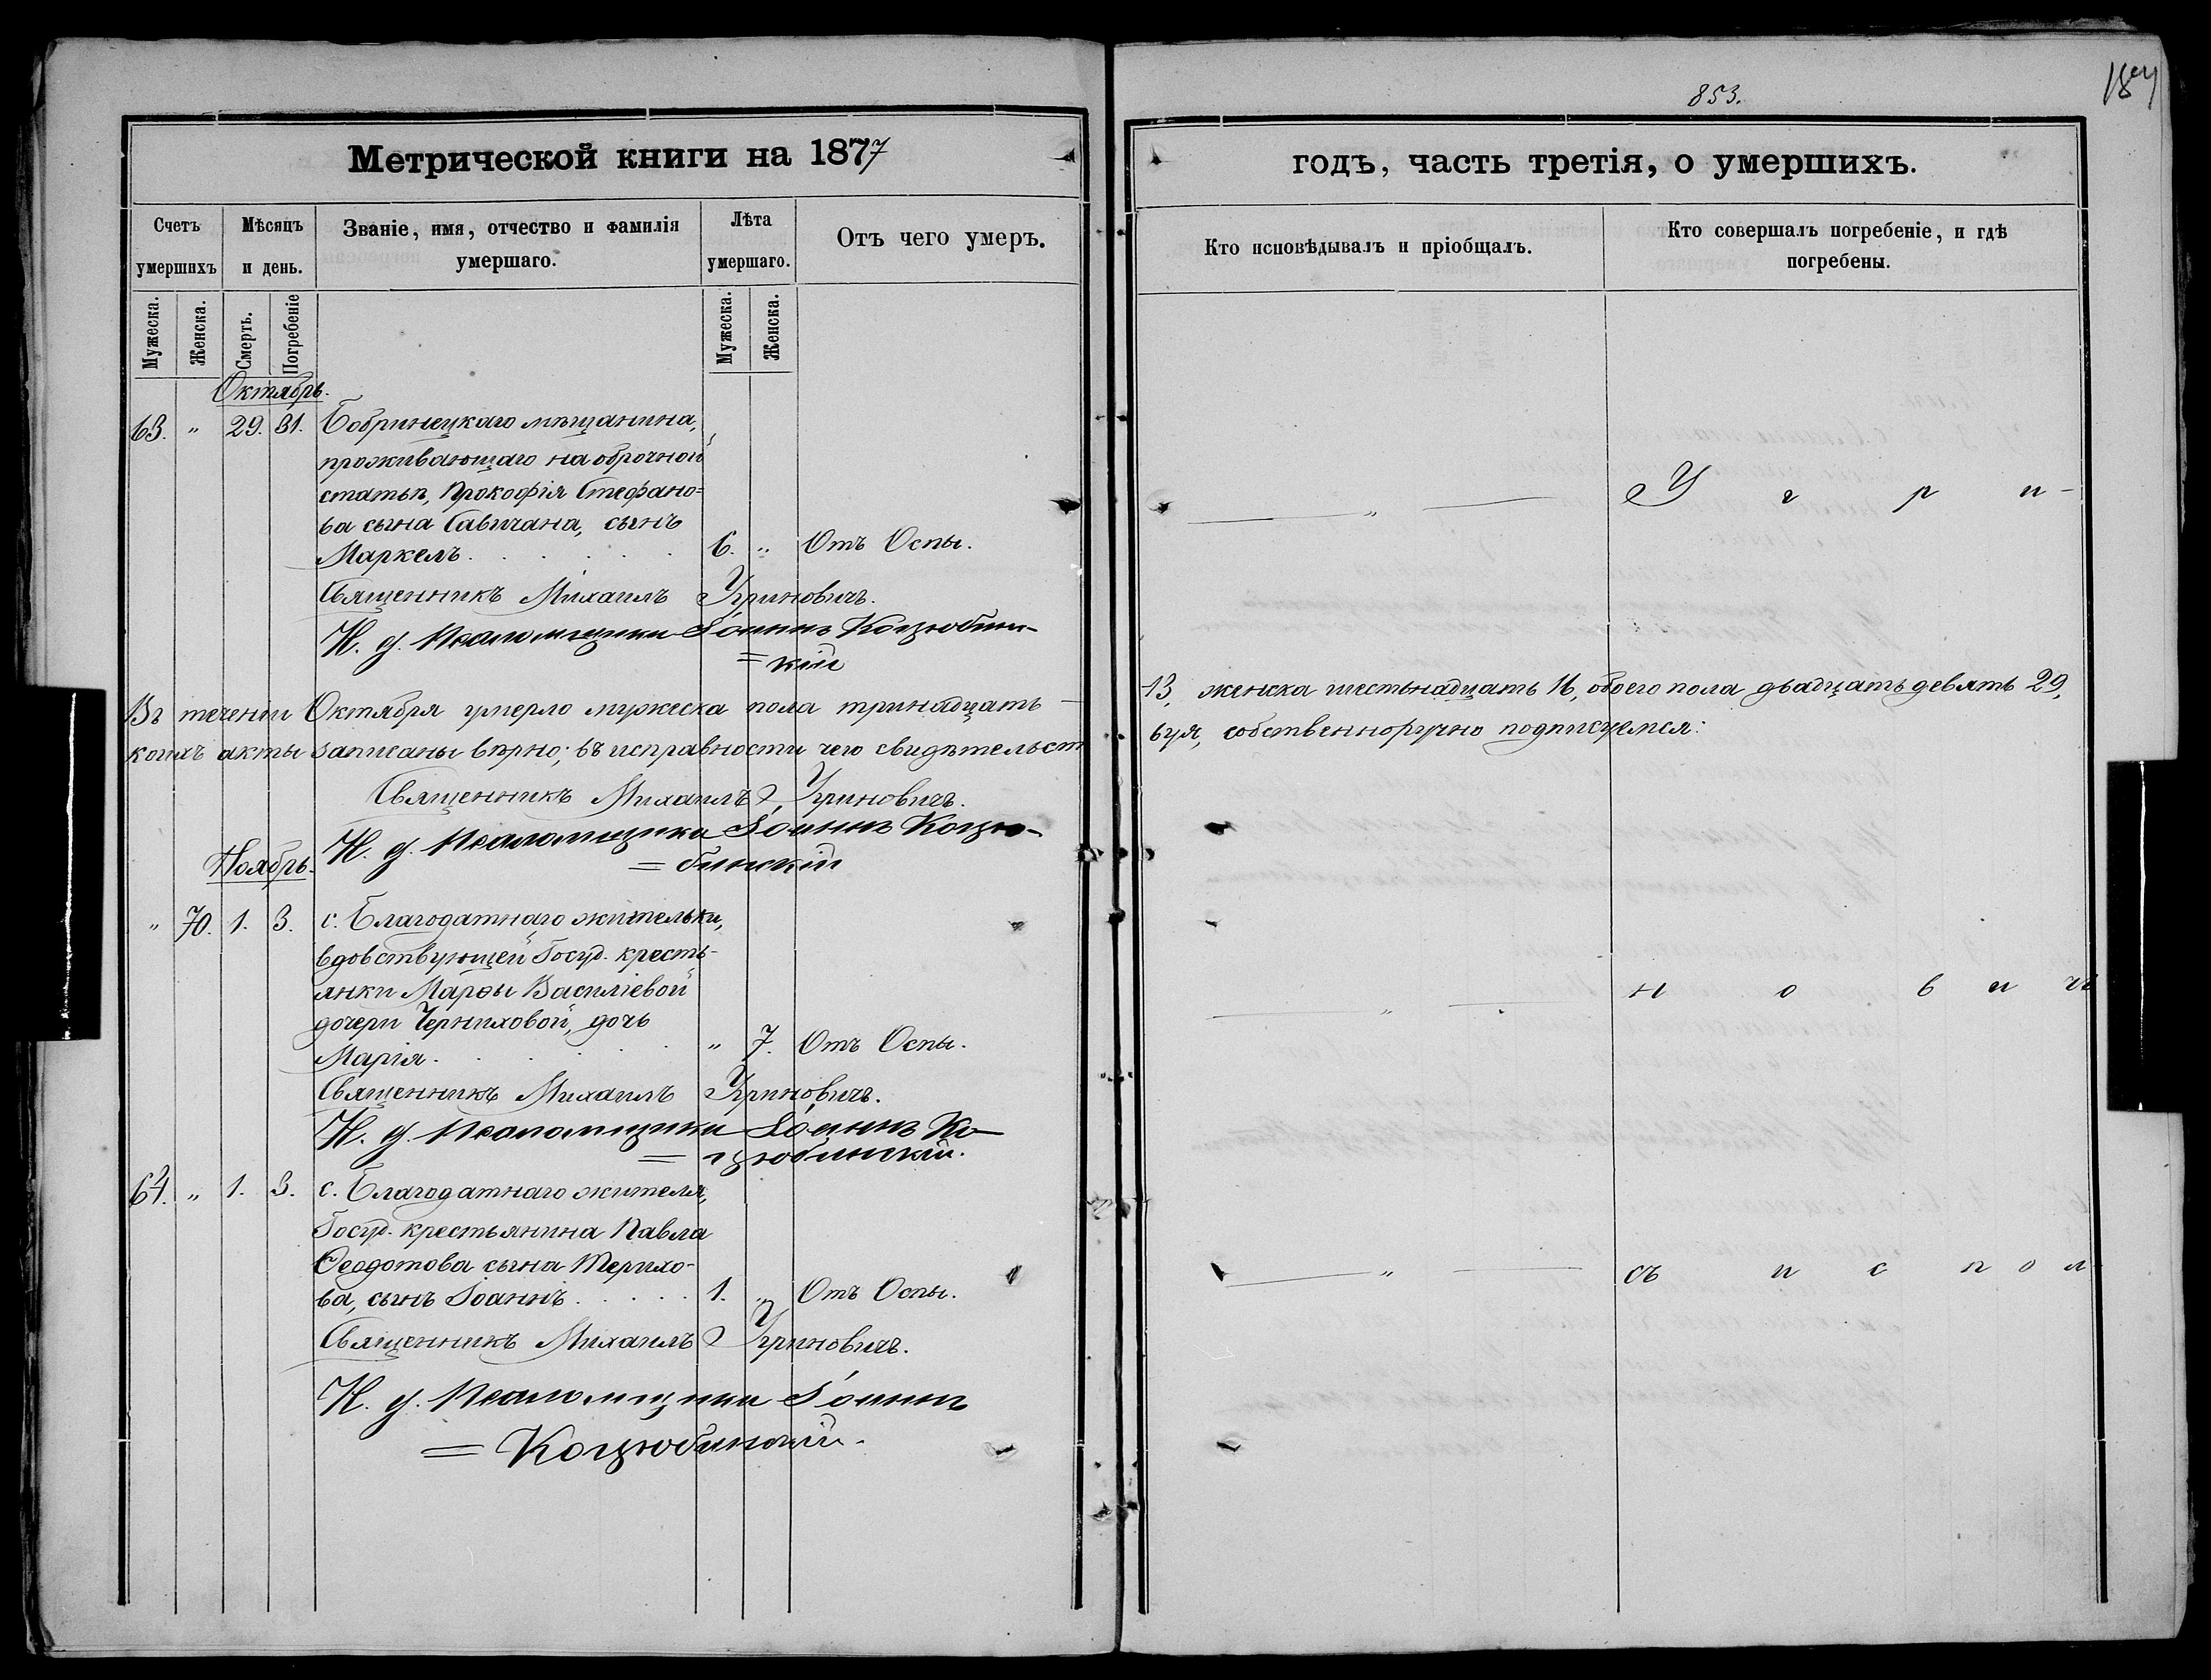 853.
187
Метрической книги на 1877
годъ, часть третія, о умершихъ.
Счетъ умершихъ
Мѣсяцъ и день.
Званіе, имя, отчество и фамилія умершаго.
Лѣта умершаго.
Отъ чего умеръ.
Кто исповѣдывалъ и пріобщалъ.
Кто совершалъ погребеніе, и гдѣ погребены.
Мужеска.
Женска.
Смерть.
Погребеніе
Мужеска.
Женска.
Октябрь.
63. " 29. 31. Бобринецкаго мѣщанина,
проживающаго на оброчной
статьѣ, Прокофія Стефано=
ва сына Савичана, сынъ
Маркелъ. 6. " Отъ Оспы.
" У г р и-
Священникъ Михаилъ Угриновичъ.
И. д. Псаломщика Іоаннъ Коцюбин-
=кій
Въ теченіи Октября умерло мужеска пола тринадцать - 13, женска шестьнадцать 16, обоего пола двадцать девять 29,
коихъ акты записаны вѣрно; въ исправности чего свидѣтельст вуя, собственноручно подписуемся:
Священникъ Михаилъ Угриновичъ.
И. д. Псаломщика Іоаннъ Коцю-
=бинскій
Ноябрь.
" 70. 1. 3. с. Благодатнаго жительки,
вдовствующей Госуд. кресть-
янки Марѳы Василіевой
дочери Черниховой, дочь
Марія. " 7. Отъ Оспы.
" н о в и чъ
Священникъ Михаилъ Угриновичъ.
И. д. Псаломщика Іоаннъ Ко-
=цюбинскій.
64. " 1. 3. с. Благодатнаго жителя,
Госуд. крестьянина Павла
Ѳеодотова сына Терихо-
ва, сынъ Іоаннъ. 1. " Отъ Оспы.
" съ и с п о л
Священникъ Михаилъ Угриновичъ.
И. д. Псаломщика Іоаннъ
=Коцюбинскій.